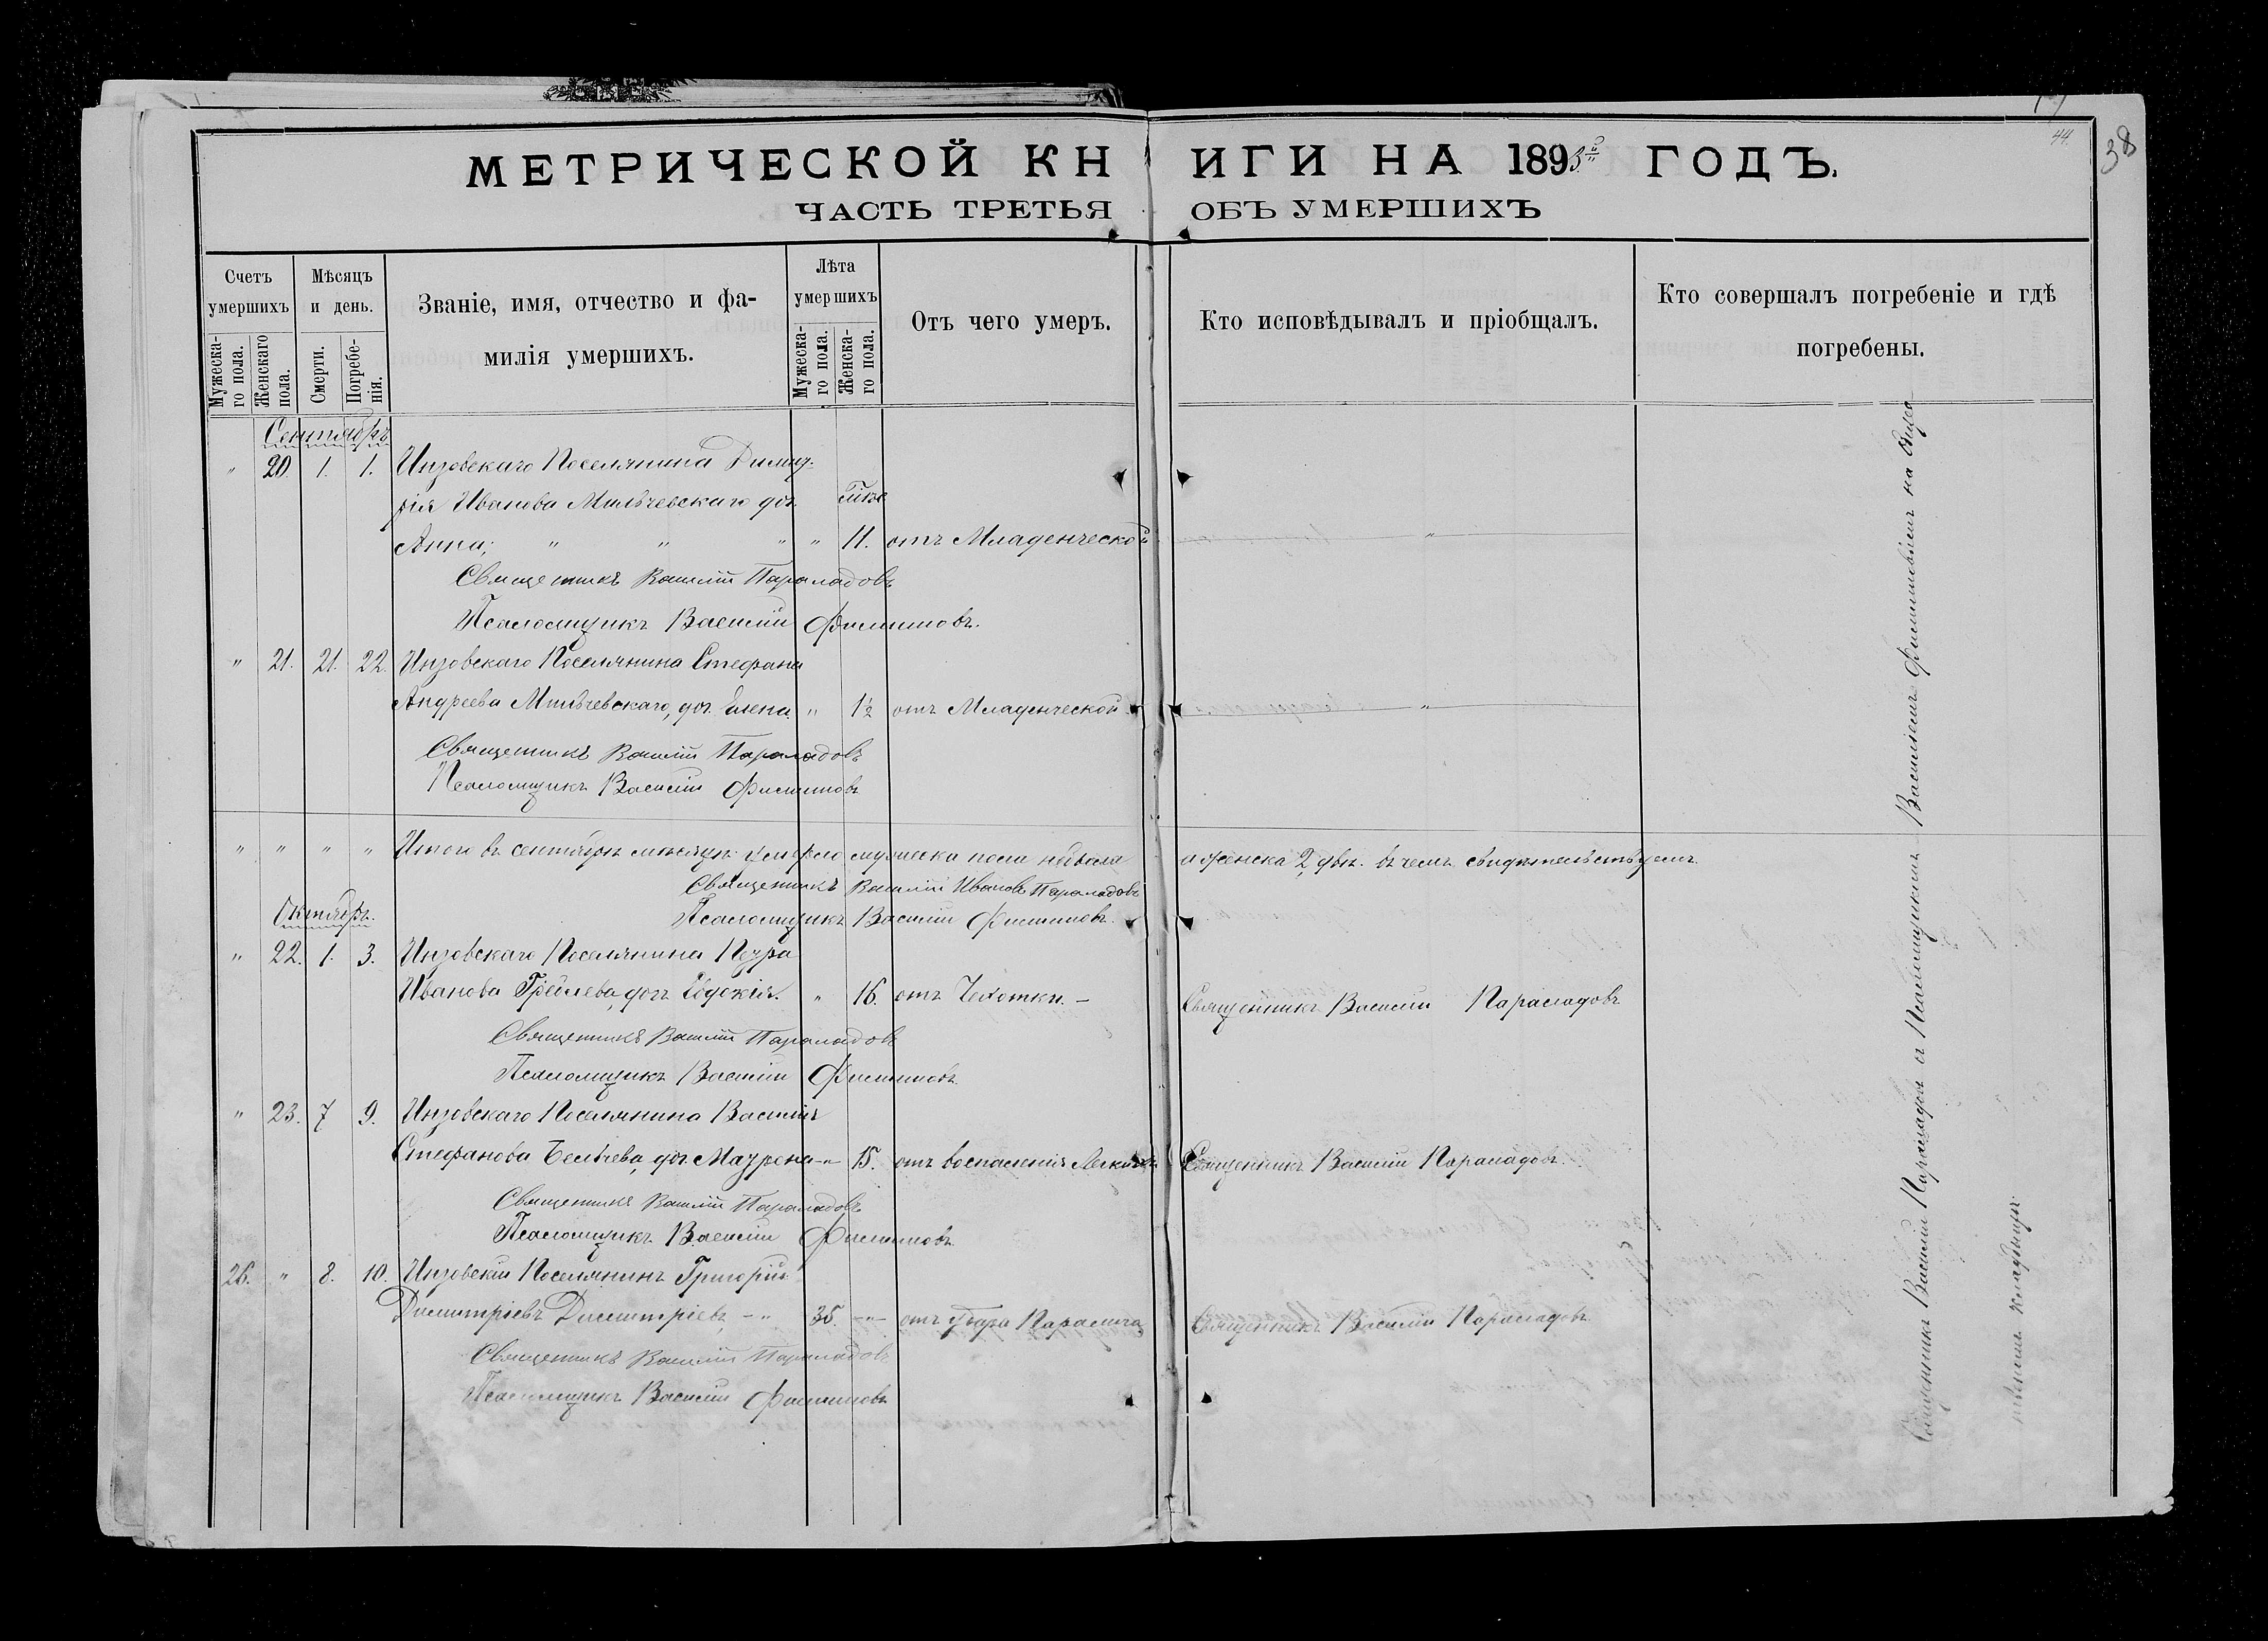 44
38
МЕТРИЧЕСКОЙ КНИГИ НА 1893й ГОДЪ.
ЧАСТЬ ТРЕТЬЯ ОБЪ УМЕРШИХЪ
Счетъ умершихъ
Мужеска-го пола.
Женскаго пола.
Мѣсяцъ и день.
Смерти.
Погребе-нія.
Званіе, имя, отчество и фа-
милія умершихъ.
Лѣта умершихъ
Мужеска-го пола.
Женска-го пола.
Отъ чего умеръ.
Кто исповѣдывалъ и пріобщалъ.
Кто совершалъ погребеніе и гдѣ
погребены.
Сентябрь
" 20. 1. 1. Инзовскаго Поселянина Димит-
рія Иванова Мильчевскаго доч.
Анна; " " " " 11. отъ Младенческой "
Священникъ Василій Параладовъ
Псаломщикъ Василій Филиповъ.
" 21. 21. 22. Инзовскаго Поселянина Стефана
Андреева Мильчевскаго, доч. Елена. " 1½ отъ Младенческой "
Священникъ Василій Параладовъ
Псаломщикъ Василій Филиповъ
" " " " Итого въ сентябрѣ мѣсяцѣ умерло мужеска пола небыло а женска 2, двѣ. въ чемъ свидѣтельствуемъ.
Священникъ Василій Ивановъ Параладовъ
Октябрь.
Псаломщикъ Василій Филиповъ.
" 22. 1. 3. Инзовскаго Поселянина Петра
Иванова доч. Евдокія. " 16. отъ Чехотки. – Священникъ Василій Параладовъ
Священникъ Василій Параладовъ
Псаломщикъ Василій Филиповъ
" 23. 7 9. Инзовскаго Поселянина Василія
Стефанова Бельчева, доч. Маурена " 15. отъ воспаленія Легкихъ Священникъ Василій Параладовъ.
Священникъ Василій Параладовъ
Псаломщикъ Василій Филиповъ
26. " 8. 10. Инзовскій Поселянинъ Григорій
Димитріевъ Димитріевъ, – " 35. – " – отъ удара Паралича Священникъ Василій Параладовъ
Священникъ Василій Параладовъ
Псаломщикъ Василій Филиповъ
Священникъ Василій Параладовъ съ Псаломщикомъ Василіемъ Филиповымъ на обще
кладбищѣ.